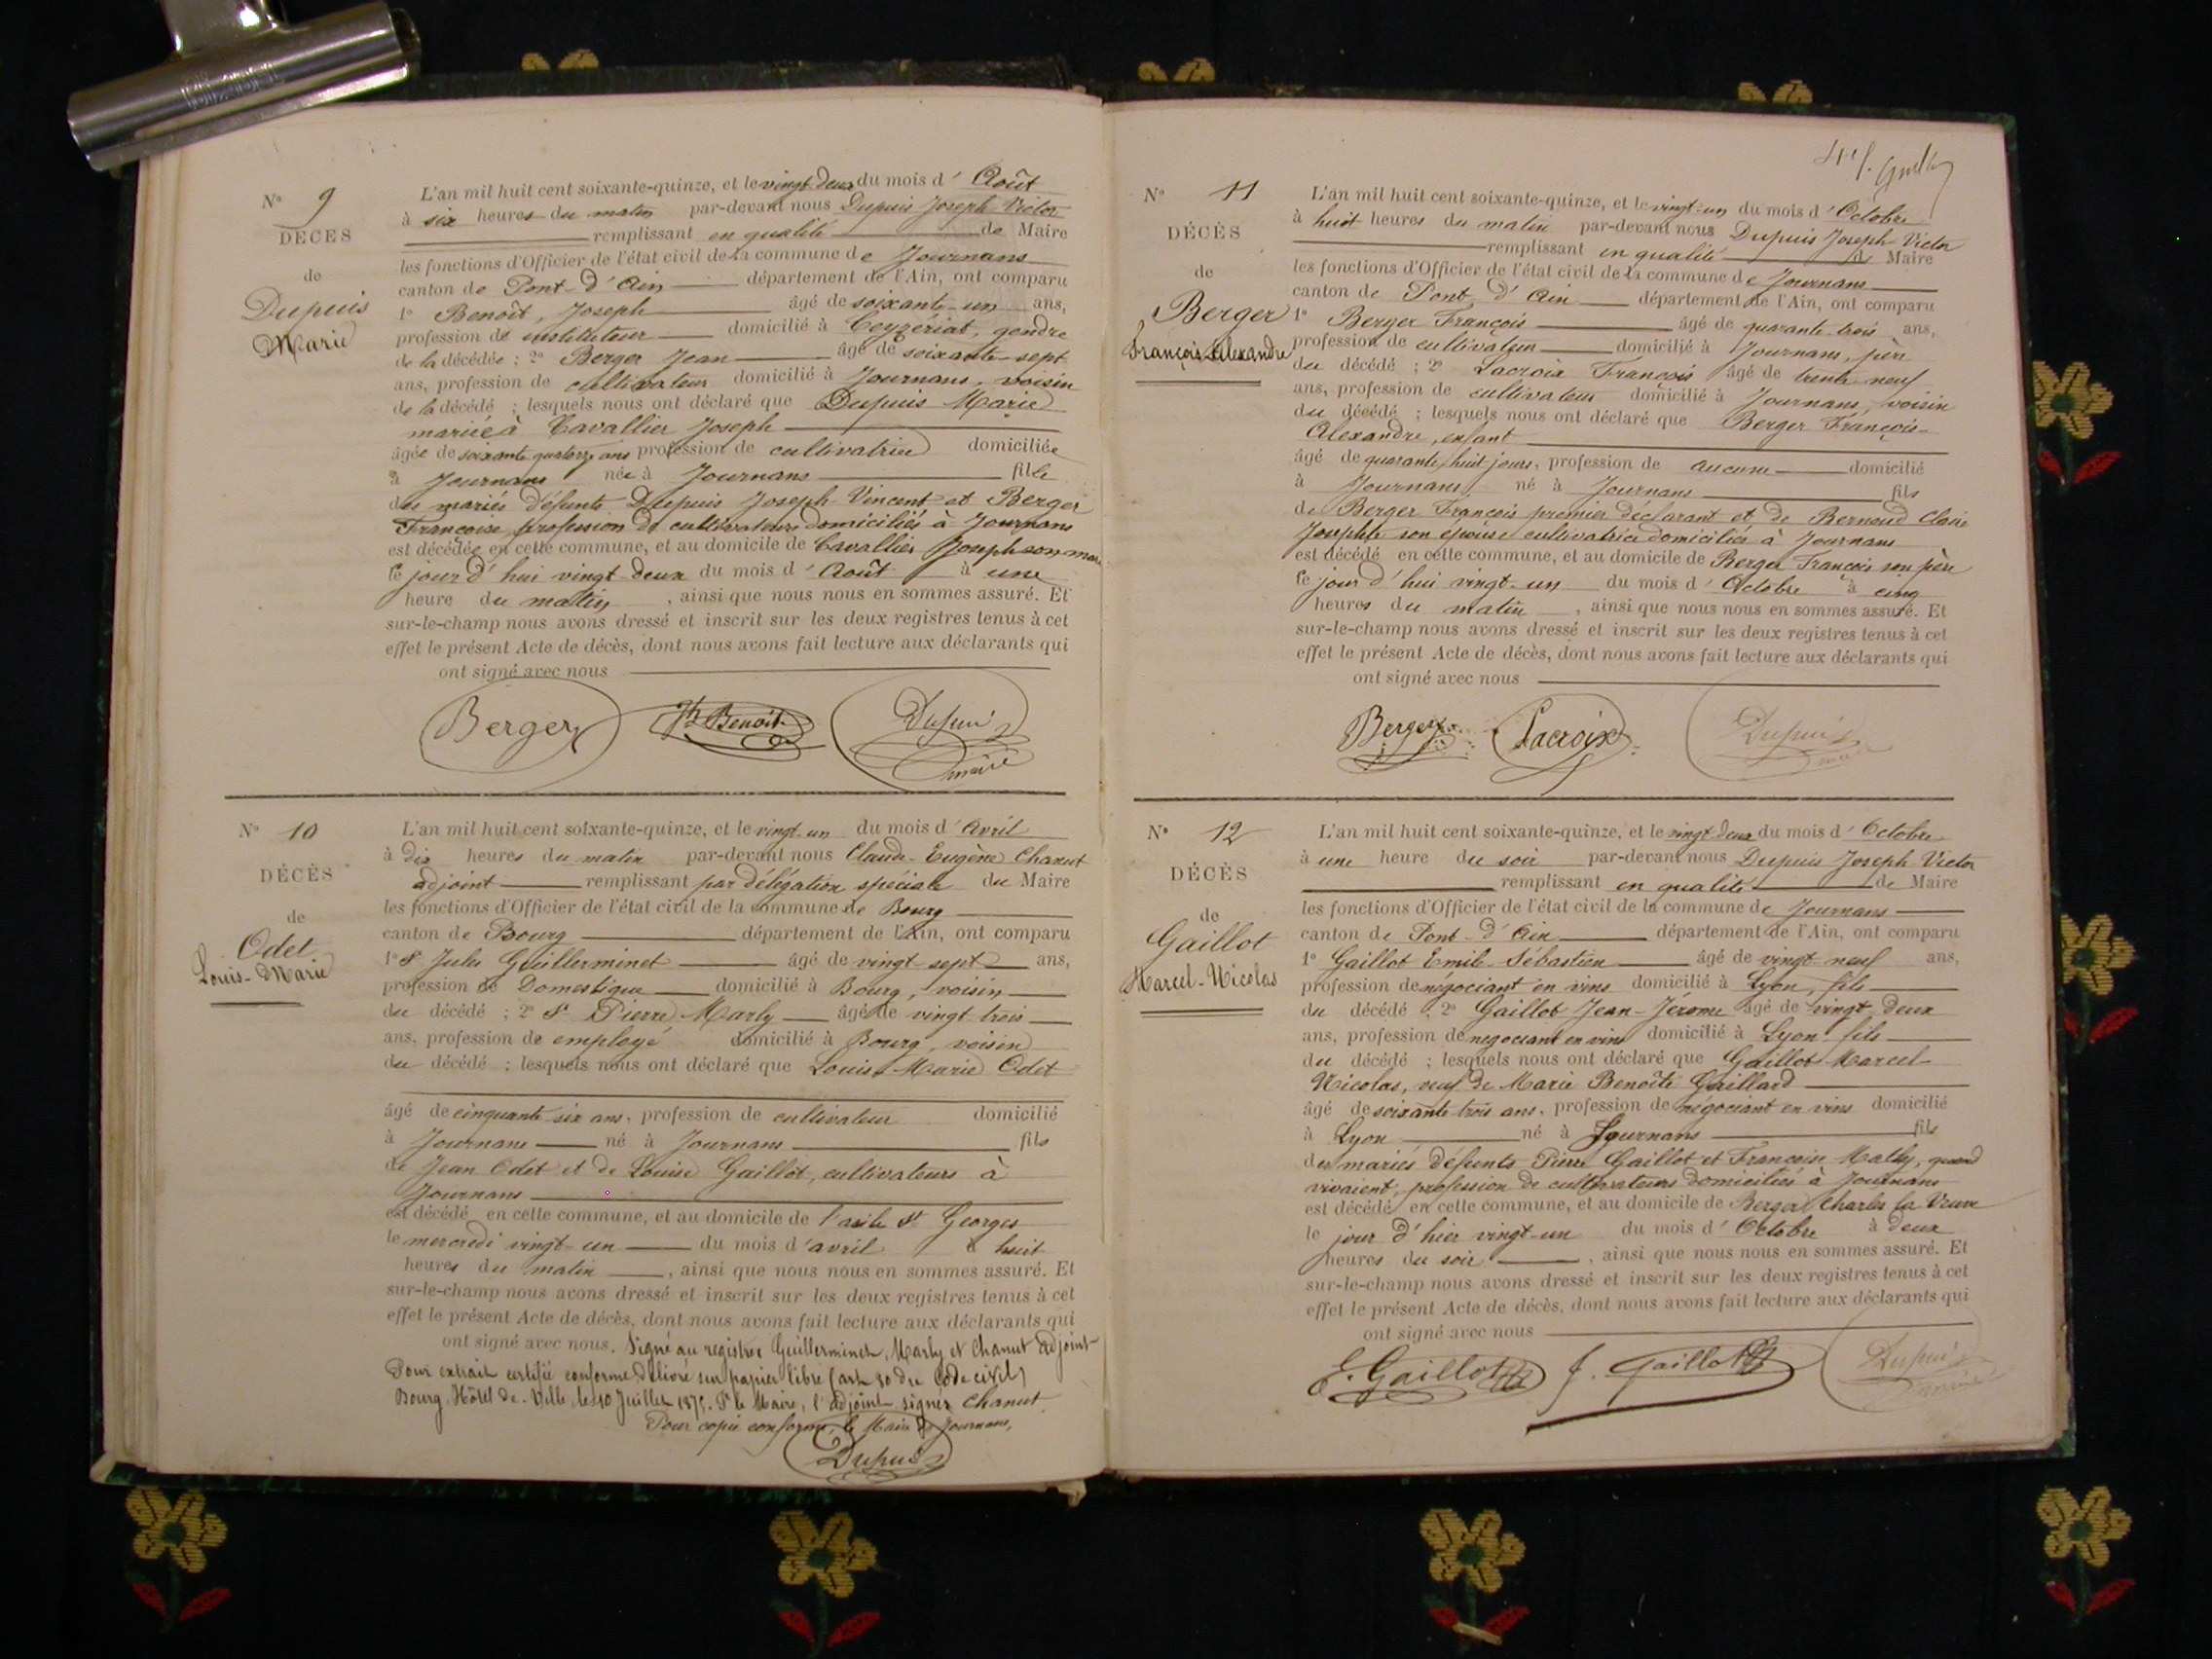 N° 9
DÉCÈS
de
Dupuis
Marie
L'an mil huit cent soixante-quinze, et le vingt-deux du mois d' Août
à six heures du matin par-devant nous Dupuis Joseph Victor
remplissant en qualité de Maire
les fonctions d'Officier de l'état civil de la commune de Journans
canton de Pont-d'Ain département de l'Ain, ont comparu
1° Benoît, Joseph âgé de soixante-un ans,
profession de instituteur domicilié à Ceyzériat, gendre
de la décédée ; 2° Berger Jean âgé de soixante-sept
ans, profession de cultivateur domicilié à Journans, voisin
de la décédé ; lesquels nous ont déclaré que Dupuis Marie
mariée à Cavallier Joseph
âgée de soixante quatorze ans profession de cultivatrice domiciliée
à Journans née à Journans fille
des mariés défunts Dupuis Joseph Vincent et Berger
Françoise profession de cultivateurs domiciliés à Journans
est décédée en cette commune, et au domicile de Cavallier Joseph son mari
le jour d'hui vingt-deux du mois d' Août à une
heure du matin, ainsi que nous nous en sommes assuré. Et
sur-le-champ nous avons dressé et inscrit sur les deux registres tenus à cet
effet le présent Acte de décès, dont nous avons fait lecture aux déclarants qui
ont signé avec nous
Berger Jh Benoit Dupuis
maire
N° 10
DÉCÈS
de
Odet
Louis-Marie
L'an mil huit cent soixante-quinze, et le vingt-un du mois d' Avril
à dix heures du matin par-devant nous Claude-Eugène Chanut
adjoint remplissant par délégation spéciale du Maire
les fonctions d'Officier de l'état civil de la commune de Bourg
canton de Bourg département de l'Ain, ont comparu
1° Sr Jules Guillerminet âgé de vingt-sept ans,
profession de Domestique domicilié à Bourg, voisin
du décédé ; 2° Sr Pierre Marly âgé de vingt-trois
ans, profession de employé domicilié à Bourg, voisin
du décédé ; lesquels nous ont déclaré que Louis-Marie Odet
âgé de cinquante-six ans, profession de cultivateur domicilié
à Journans né à Journans fils
de Jean Odet et de Louise Gaillot, cultivateurs à
Journans
est décédé en cette commune, et au domicile de l'asile St Georges
le mercredi vingt-un du mois d'avril à huit
heures du matin, ainsi que nous nous en sommes assuré. Et
sur-le-champ nous avons dressé et inscrit sur les deux registres tenus à cet
effet le présent Acte de décès, dont nous avons fait lecture aux déclarants qui
ont signé avec nous. Signé au registre Guillerminet, Marly et Chanut adjoint
Pour extrait certifié conforme Délivré sur papier libre (art. 80 du Code civil)
Bourg, Hôtel-de-Ville, le 10 Juillet 1875. Pr le Maire, l'adjoint signé Chanut.
Pour copie conforme, le Maire de Journans,
Dupuis
N° 11
DÉCÈS
de
Berger
François Alexandre
L'an mil huit cent soixante-quinze, et le vingt-un du mois d' Octobre
à huit heures du matin par-devant nous Dupuis Joseph-Victor
remplissant en qualité de Maire
les fonctions d'Officier de l'état civil de la commune de Journans
canton de Pont-d'Ain département de l'Ain, ont comparu
1° Berger François âgé de quarante-trois ans,
profession de cultivateur domicilié à Journans, père
du décédé ; 2° Lacroix François âgé de trente-neuf
ans, profession de cultivateur domicilié à Journans, voisin
du décédé ; lesquels nous ont déclaré que Berger François-
Alexandre, enfant
âgé de quarante huit jours, profession de aucune domicilié
à Journans, né à Journans fils
de Berger François premier déclarant et de Bernoud Claire
Josephte son épouse cultivatrice domiciliés à Journans
est décédé en cette commune, et au domicile de Berger François son père
le jour d'hui vingt-un du mois d' Octobre à cinq
heures du matin, ainsi que nous nous en sommes assuré. Et
sur-le-champ nous avons dressé et inscrit sur les deux registres tenus à cet
effet le présent Acte de décès, dont nous avons fait lecture aux déclarants qui
ont signé avec nous
Berger Lacroix Dupuis
maire
N° 12
DÉCÈS
de
Gaillot
Marcel-Nicolas
L'an mil huit cent soixante-quinze, et le vingt-deux du mois d' Octobre
à une heure du soir par-devant nous Dupuis Joseph Victor
remplissant en qualité de Maire
les fonctions d'Officier de l'état civil de la commune de Journans
canton de Pont-d'Ain département de l'Ain, ont comparu
1° Gaillot Emile-Sébastien âgé de vingt-neuf ans,
profession de négociant en vins domicilié à Lyon, fils
du décédé ; 2° Gaillot Jean-Jérome âgé de vingt-deux
ans, profession de négociant en vins domicilié à Lyon fils
du décédé ; lesquels nous ont déclaré que Gaillot Marcel
Nicolas, veuf de Marie Benoîte Gaillard
âgé de soixante trois ans, profession de négociant en vins domicilié
à Lyon né à Journans fils
des mariés défunts Pierre Gaillot et Françoise quand
vivaient, profession de cultivateurs domiciliés à Journans
est décédé en cette commune, et au domicile de Berger Charles la Veuve
le jour d'hier vingt-un du mois d' Octobre à deux
heures du soir, ainsi que nous nous en sommes assuré. Et
sur-le-champ nous avons dressé et inscrit sur les deux registres tenus à cet
effet le présent Acte de décès, dont nous avons fait lecture aux déclarants qui
ont signé avec nous
E. Gaillot J. Gaillot Dupuis
maire